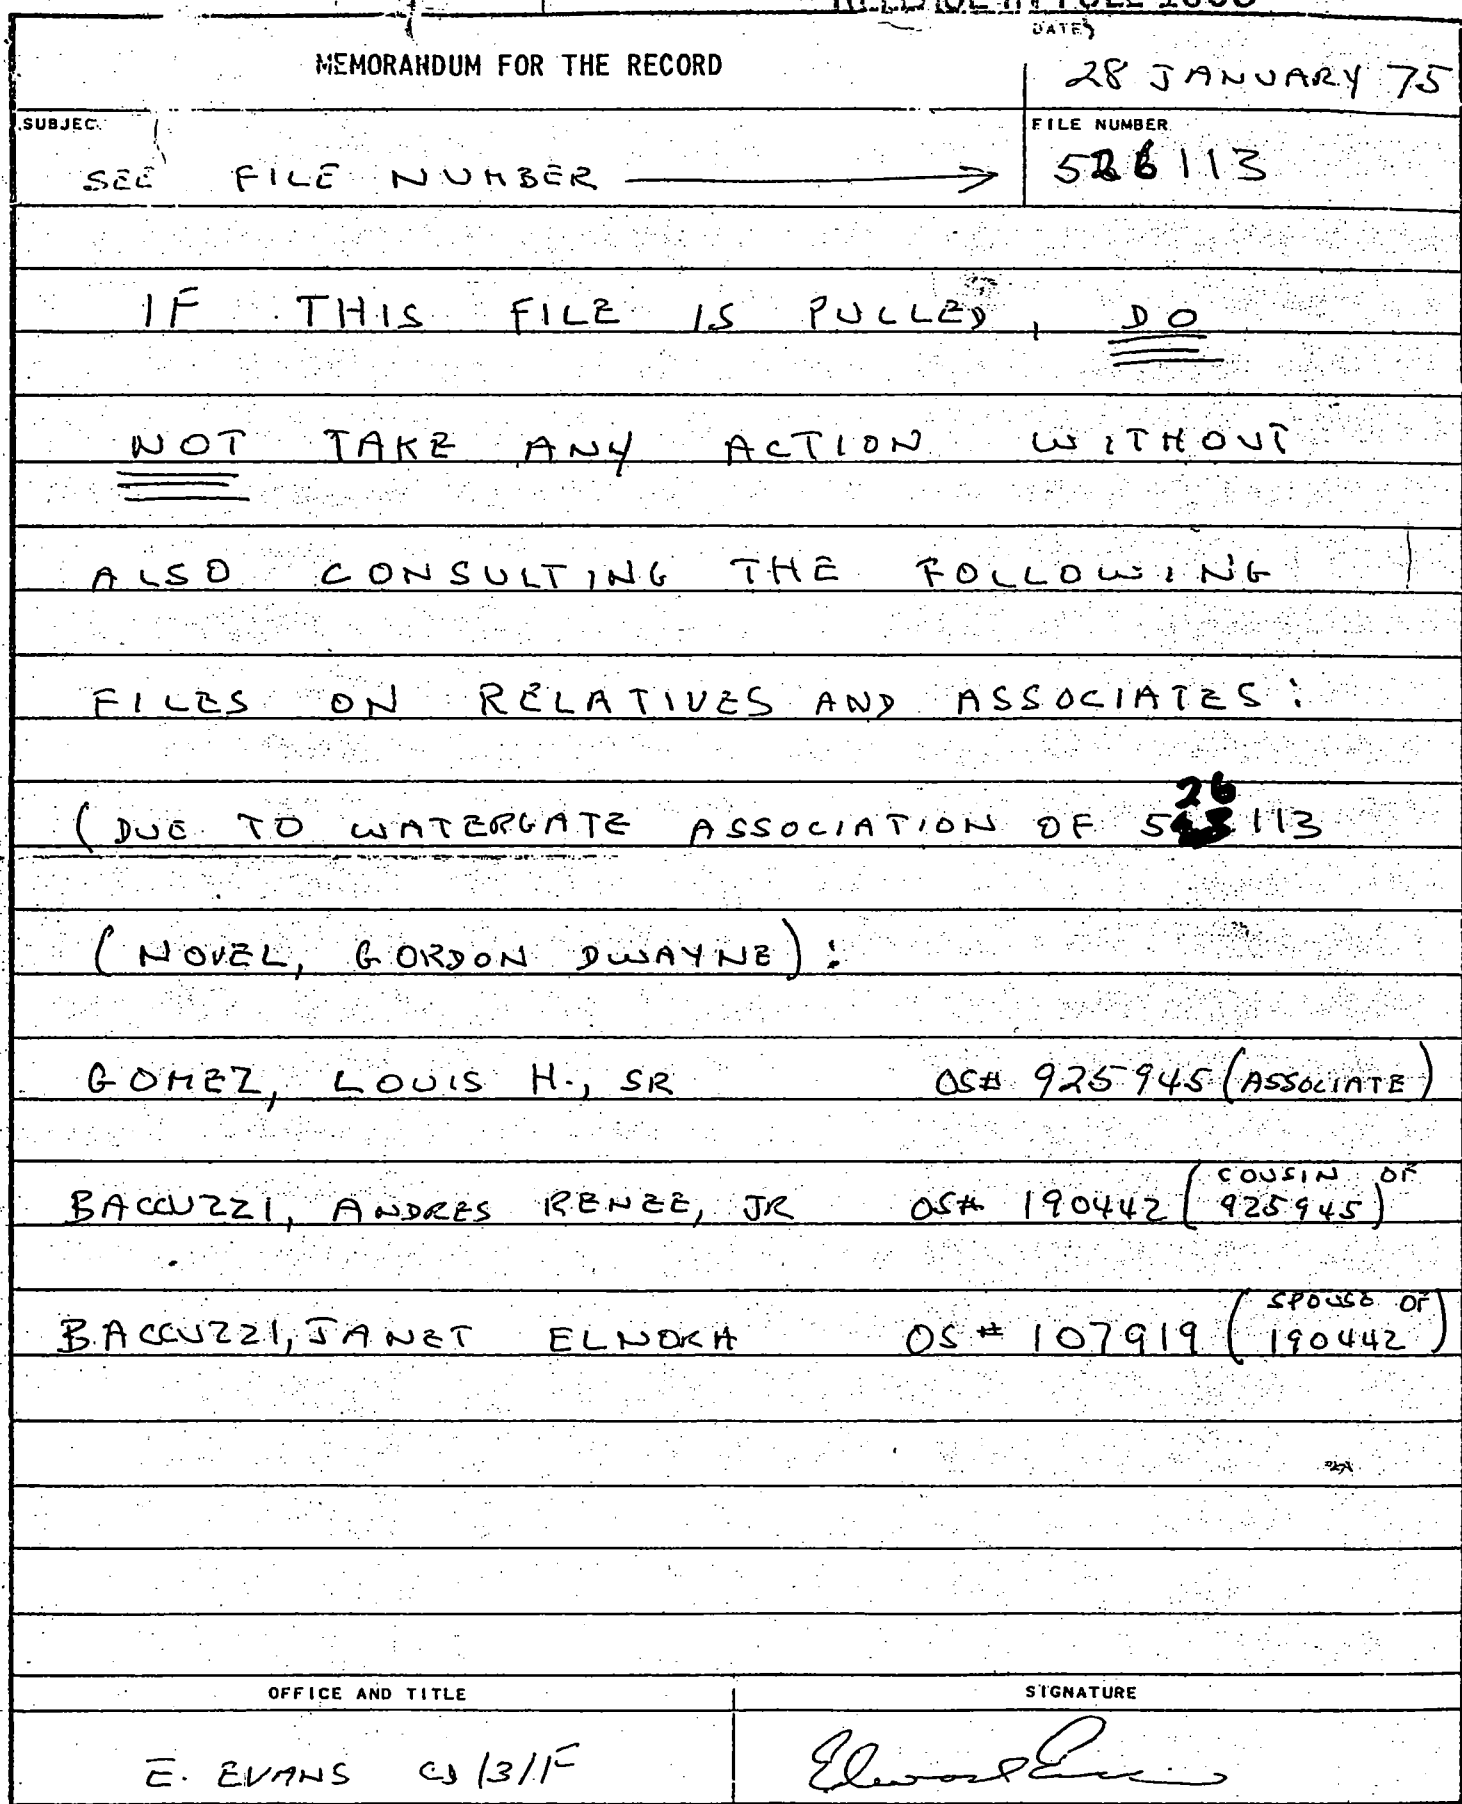 DATE
MEMORANDUM FOR THE RECORD
28 JANUARY 75
SUBJEC
FILE NUMBER
SEE FILE NUMBER
526113
IF THIS FILE IS PULLED, DO
NOT TAKE ANY ACTION WITHOUT
ALSO CONSULTING THE FOLLOWING
FILES ON RELATIVES AND ASSOCIATES:
(DUE TO WATERGATE ASSOCIATION OF 526113
(NOVEL, GORDON DWAYNE):
GOMEZ, LOUIS H., SR OS# 925945 (ASSOCIATE)
BACCUZZI, ANDRES RENEE, JR OS# 190442 (COUSIN OF
925945)
BACCUZZI, JANET ELNORA OS# 107919 (SPOUSE OF
190442)
OFFICE AND TITLE
SIGNATURE
E. EVANS